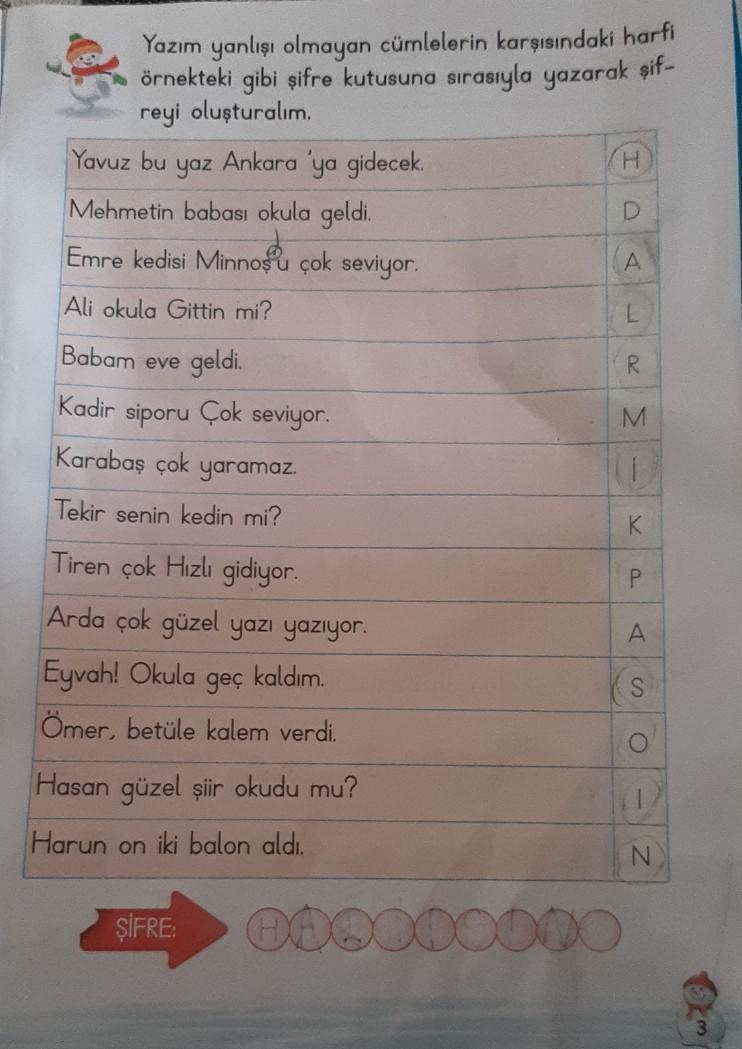 Yazım yanlışı olmayan cümlelerin karşısındaki harfi
örnekteki gibi şifre kutusuna sırasıyla yazarak şif-
reyi oluşturalım.
Yavuz bu yaz Ankara 'ya gidecek. H
Mehmetin babası okula geldi. D
Emre kedisi Minnoş'u çok seviyor. A
Ali okula Gittin mi? L
Babam eve geldi. R
Kadir siporu Çok seviyor. M
Karabaş çok yaramaz. İ
Tekir senin kedin mi? K
Tiren çok Hızlı gidiyor. P
Arda çok güzel yazı yazıyor. A
Eyvah! Okula geç kaldım. S
Ömer, betüle kalem verdi. O
Hasan güzel şiir okudu mu? I
Harun on iki balon aldı. N
ŞİFRE: H A
3